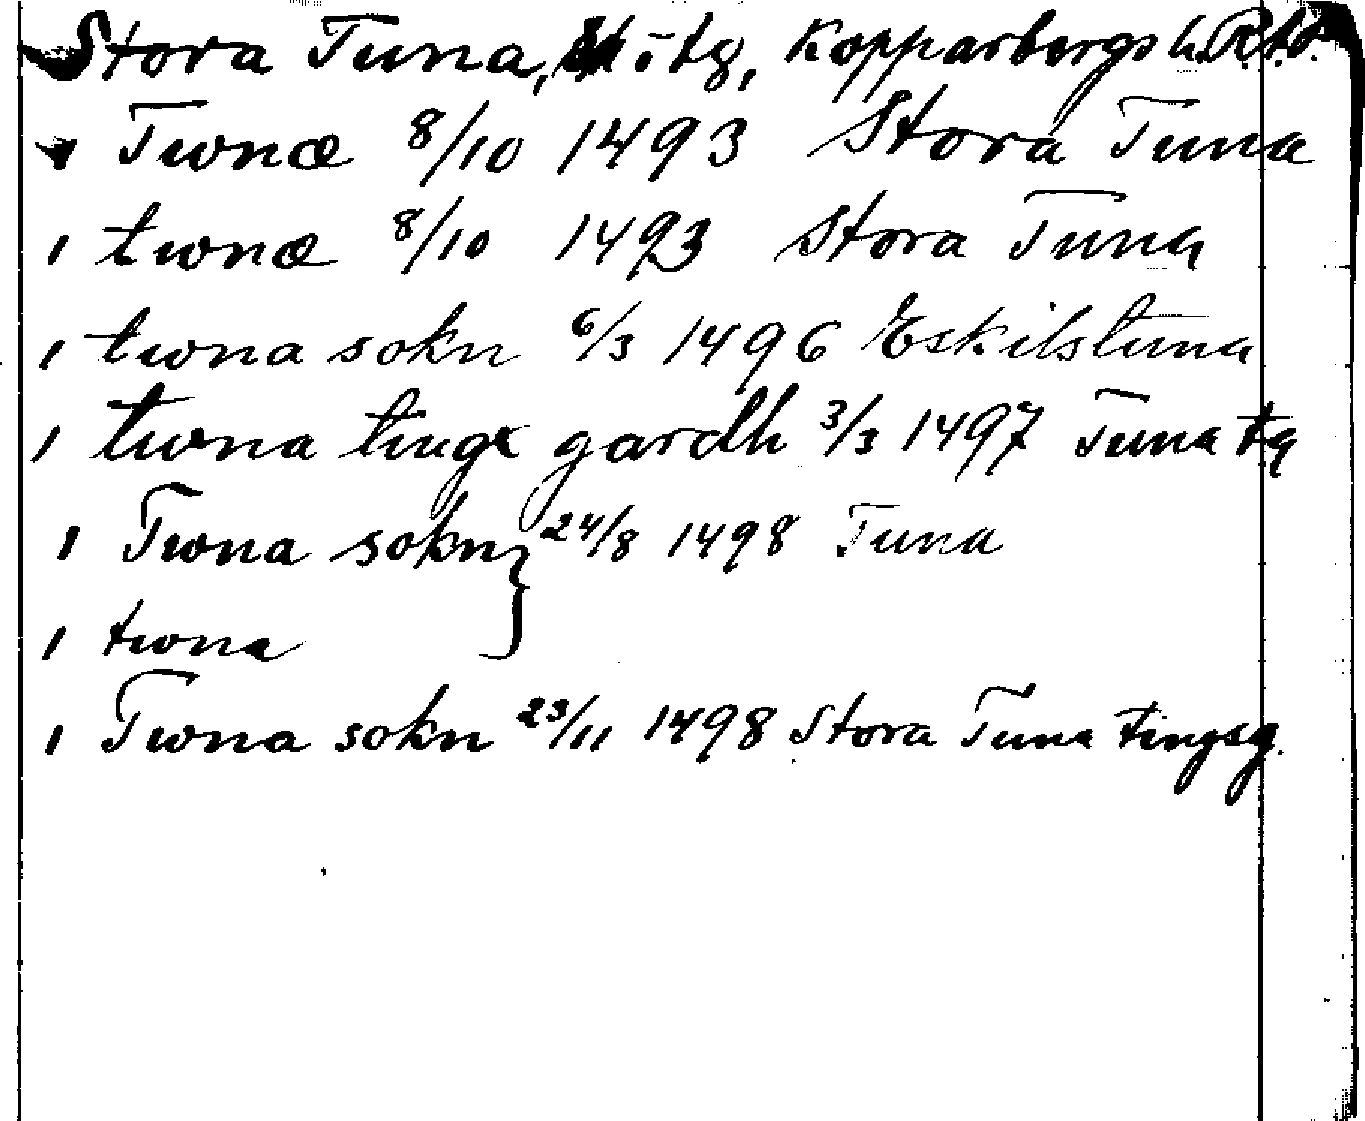 Stora Tuna, i tg, Kopparbergs l. R.A.
1 Twnæ 8/10 1493 Stora Tuna
1 twnæ 8/10 1493 Stora Tuna
1 twna sokn 6/3 1496 Eskilstuna
1 twna tingx gardh 3/3 1497 Tuna tg
1 Twna sokn } 24/8 1498 Tuna
1 twna
1 Twna sokn 23/11 1498 Stora Tuna tingsg.